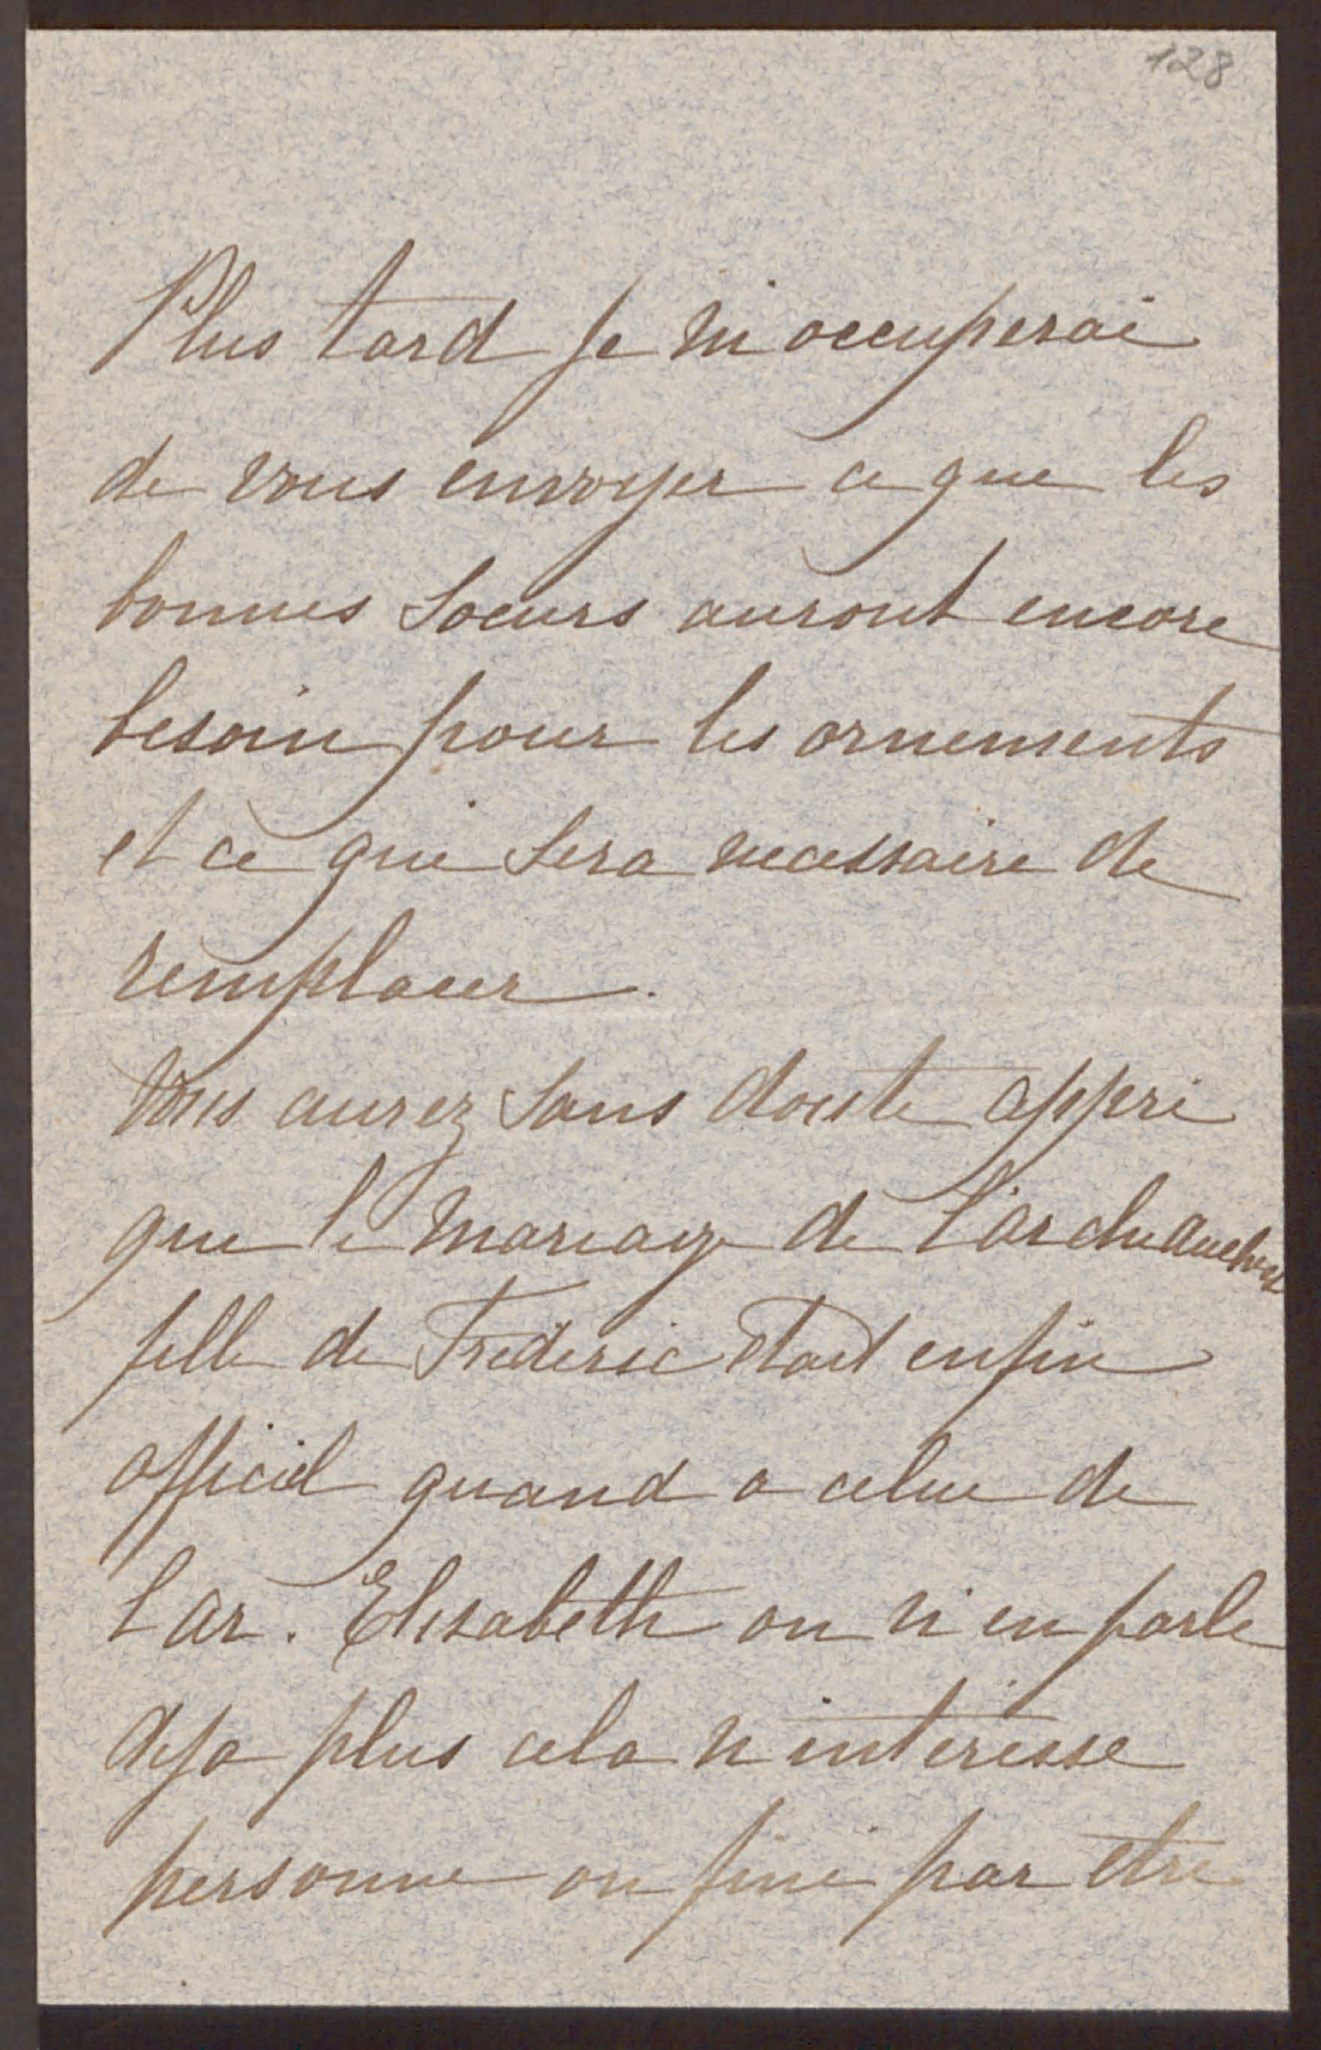 128
Plus tard je m'occuperai
de vous envoyer ce que les
bonnes Soeurs auront encore
besoin pour les ornements
et ce qui Sera necessaire de
remplacer.
Vous aurez Sans doute appri
que le mariage de l'archeduchesse
fille de Frederic etait enfin
officiel quand a celui de
l'ar. Elisabeth on n'en parle
deja plus cela n'interesse
personne on fini par etre